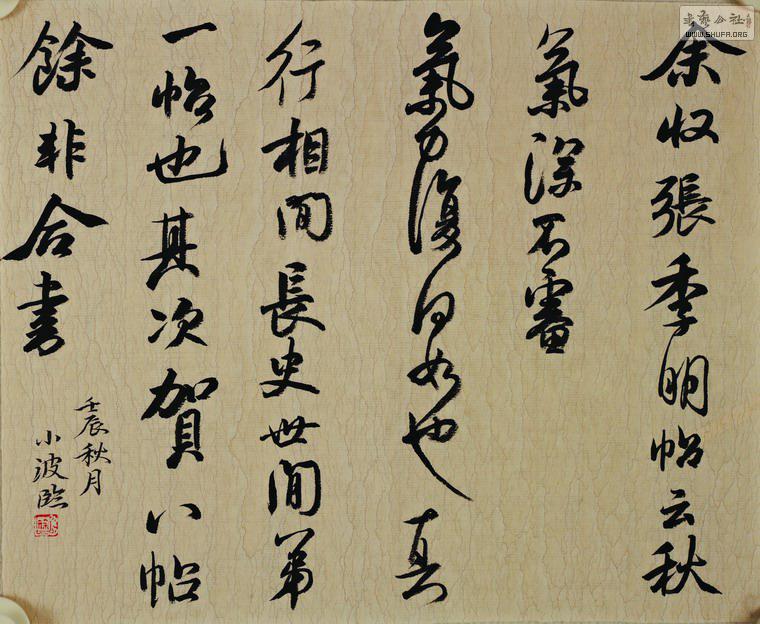 余收張季明帖云秋
氣深不審
氣力復何如也真
行相間長史世間第
一帖也其次賀八帖
餘非合書
壬辰秋月
小波臨
书艺公社
WWW.SHUFA.ORG